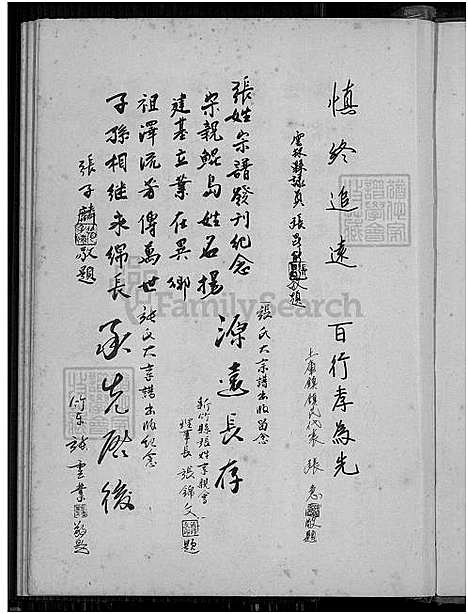 慎終追遠
雲林縣議員 張 敬題
百行孝為先
土庫鎮鎮民代表 張 敬題
張姓宗譜發刊紀念
宗親鯤島姓名揚
建基立業在異鄉
祖澤流芳傳萬世
子孫相繼永綿長
張子麟敬題
張氏大宗譜出版留念
源遠長存
新竹縣張姓宗親會
理事長 張錦文 題
張氏大宗譜出版紀念
承先啟後
竹東 張雲業 敬題
FamilySearch